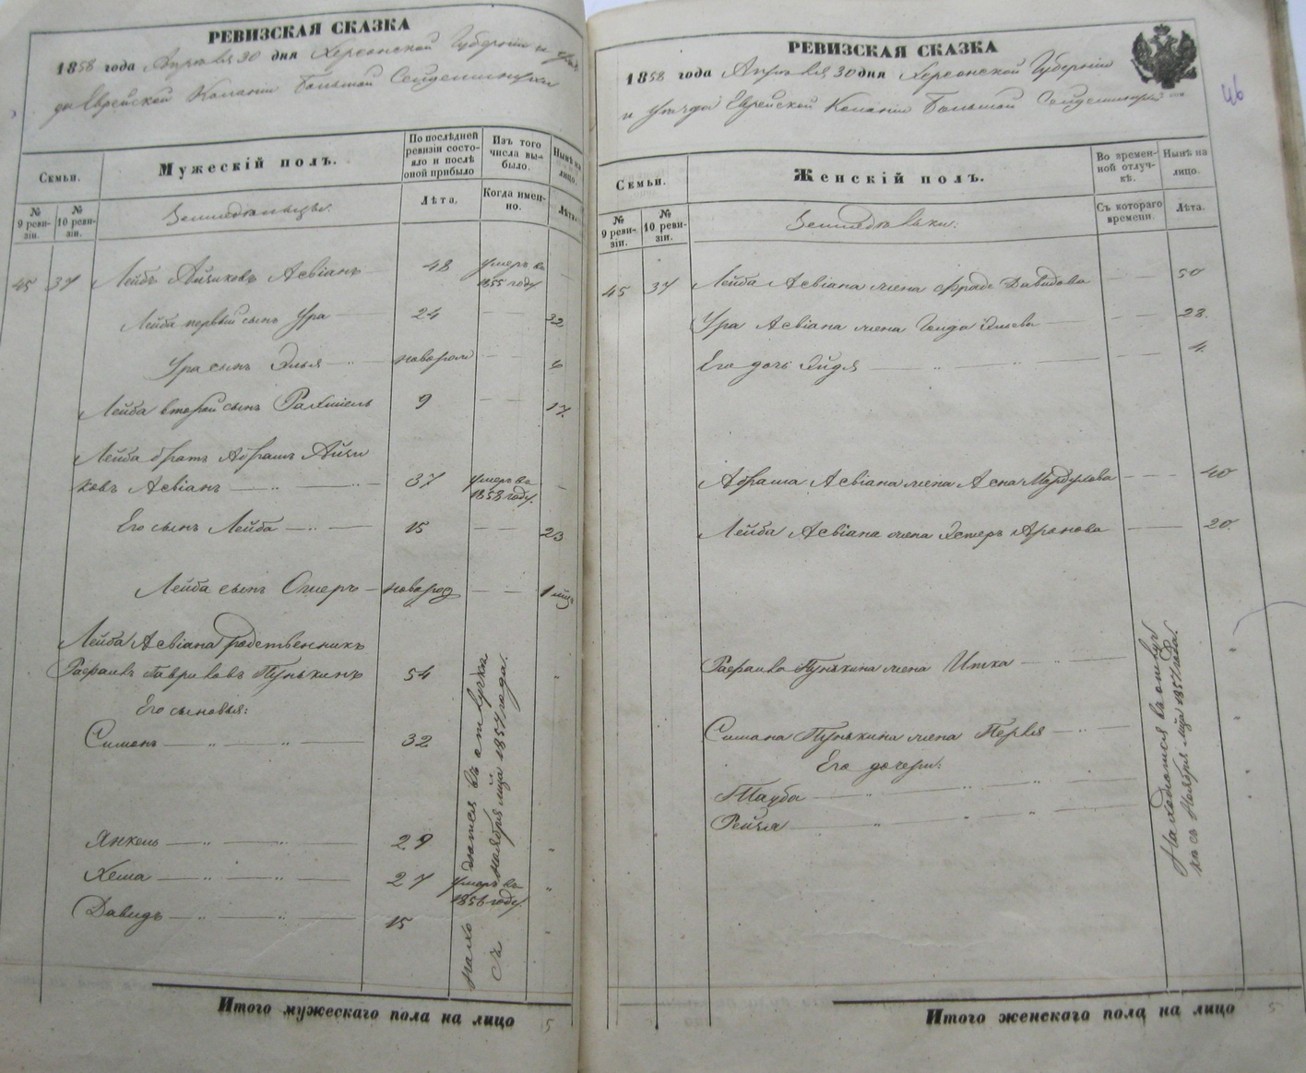 РЕВИЗСКАЯ СКАЗКА
1858 года Апреля 30 дня Херсонской Губерніи и уѣз
да Еврейской Колоніи Большой Сейдеминухи
Семьи.
№ 9 ревизіи.
№ 10 ревизіи.
Мужескій полъ.
Земледѣльцы.
По послѣдней ревизіи состояло и послѣ оной прибыло
Лѣта.
Изъ того числа выбыло.
Когда именно.
Нынѣ на лицо.
Лѣта.
45 37 Лейбъ Айзиковъ Асвіанъ 48 умеръ въ 1855 году
Лейба первый сынъ Ура 24 32
Ура сынъ Элья новорож 6
Лейба второй сынъ Рахміель 9 17.
Лейба братъ Абрамъ Айзи
ковъ Асвіанъ 37 умеръ въ 1858 году.
Его сынъ Лейба 15 23
Лейба сынъ Ошеръ новорож 1
Лейба Асвіана родственникъ
Рафаилъ Гавриловъ Пунькинъ 54
Его сыновья:
Симонъ 32
Янкель 29
Хема 27 умеръ въ 1856 году.
Давидъ 15
находятся въ отлучкѣ
съ ноября мца 1857 года.
Итого мужескаго пола на лицо 5
РЕВИЗСКАЯ СКАЗКА
1858 года Апреля 30 дня Херсонской Губерніи
и уѣзда Еврейской Колоніи Большой Сейдеминухи
46
Семьи.
№ 9 ревизіи.
№ 10 ревизіи.
Женскій полъ.
Земледѣлки.
Во временной отлучкѣ.
Съ котораго времени.
Нынѣ на лицо.
Лѣта.
45 37 Лейба Асвіана жена Фрадя Давидова 50
Ура Асвіана жена 28.
Его дочь Эйдля 4.
Абрама Асвіана жена Асна Мордухова 40
Лейба Асвіана жена Эстеръ Аронова 20.
Рафаила Пунькина жена Итка
Симона Пунькина жена Перля
Его дочери:
Тауба
Рейзя
Находятся въ отлуч
кѣ съ Ноября мца 1857 года.
Итого женскаго пола на лицо 5